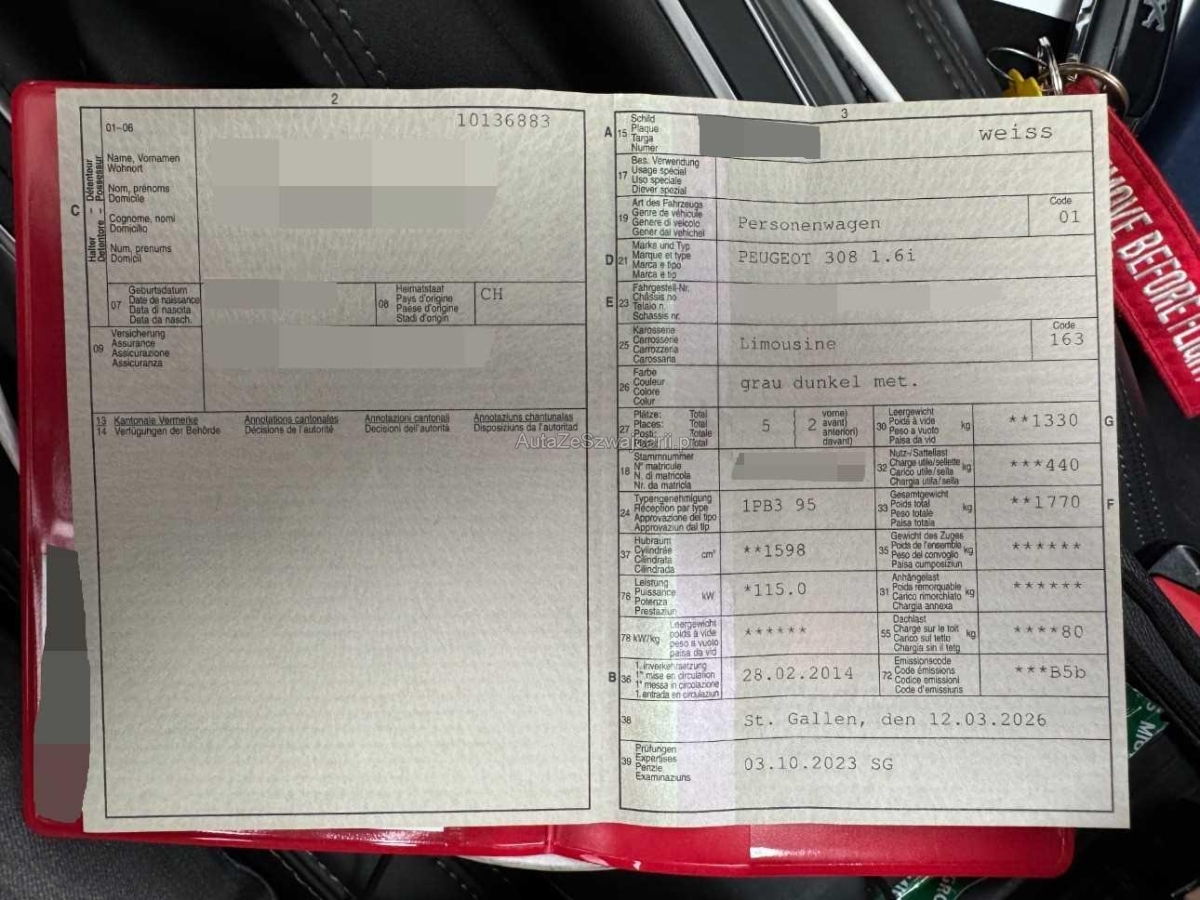 2
01–06
10136883
C
Halter – Détenteur
Detentore – Possessur
Name, Vornamen
Wohnort
Nom, prénoms
Domicile
Cognome, nomi
Domicilio
Num, prenums
Domicil
07
Geburtsdatum
Date de naissance
Data di nascita
Data da nasch.
08
Heimatstaat
Pays d'origine
Paese d'origine
Stadi d'origin
CH
09
Versicherung
Assurance
Assicurazione
Assicuranza
13 Kantonale Vermerke Annotations cantonales Annotazioni cantonali Annotaziuns chantunalas
14 Verfügungen der Behörde Décisions de l'autorité Decisioni dell'autorità Disposiziuns da l'autoritad
3
A 15
Schild
Plaque
Targa
Numer
weiss
17
Bes. Verwendung
Usage spécial
Uso speciale
Diever spezial
19
Art des Fahrzeugs
Genre de véhicule
Genere di veicolo
Gener dal vehichel
Personenwagen
Code
01
D 21
Marke und Typ
Marque et type
Marca e tipo
Marca e tip
PEUGEOT 308 1.6i
E 23
Fahrgestell-Nr.
Châssis no
Telaio n.
Schassis nr.
25
Karosserie
Carrosserie
Carrozzeria
Carossaria
Limousine
Code
163
26
Farbe
Couleur
Colore
Colur
grau dunkel met.
27
Plätze: Total
Places: Total
Posti: Totale
Plazs: Total
5
2
vorne)
avant)
anteriori)
davant)
30
Leergewicht
Poids à vide
Peso a vuoto
Paisa da vid
kg
**1330
G
AutaZeSzwajcarii.pl
18
Stammnummer
N° matricule
N. di matricola
Nr. da matricla
32
Nutz-/Sattellast
Charge utile/sellette
Carico utile/sella
Chargia utila/sella
kg
***440
24
Typengenehmigung
Réception par type
Approvazione del tipo
Approvaziun dal tip
1PB3 95
33
Gesamtgewicht
Poids total
Peso totale
Paisa totala
kg
**1770
F
37
Hubraum
Cylindrée
Cilindrata
Cilindrada
cm³
**1598
35
Gewicht des Zuges
Poids de l'ensemble
Peso del convoglio
Paisa cumposiziun
kg
******
76
Leistung
Puissance
Potenza
Prestaziun
kW
*115.0
31
Anhängelast
Poids remorquable
Carico rimorchiato
Chargia annexa
kg
******
78 kW/kg
Leergewicht
poids à vide
peso a vuoto
paisa da vid
******
55
Dachlast
Charge sur le toit
Carico sul tetto
Chargia sin il tetg
kg
****80
B 36
1. Inverkehrsetzung
1re mise en circulation
1a messa in circolazione
1. entrada en circulaziun
28.02.2014
72
Emissionscode
Code émissions
Codice emissioni
Code d'emissiuns
***B5b
38
St. Gallen, den 12.03.2026
39
Prüfungen
Expertises
Perizie
Examinaziuns
03.10.2023 SG
MOVE BEFORE FLIGHT